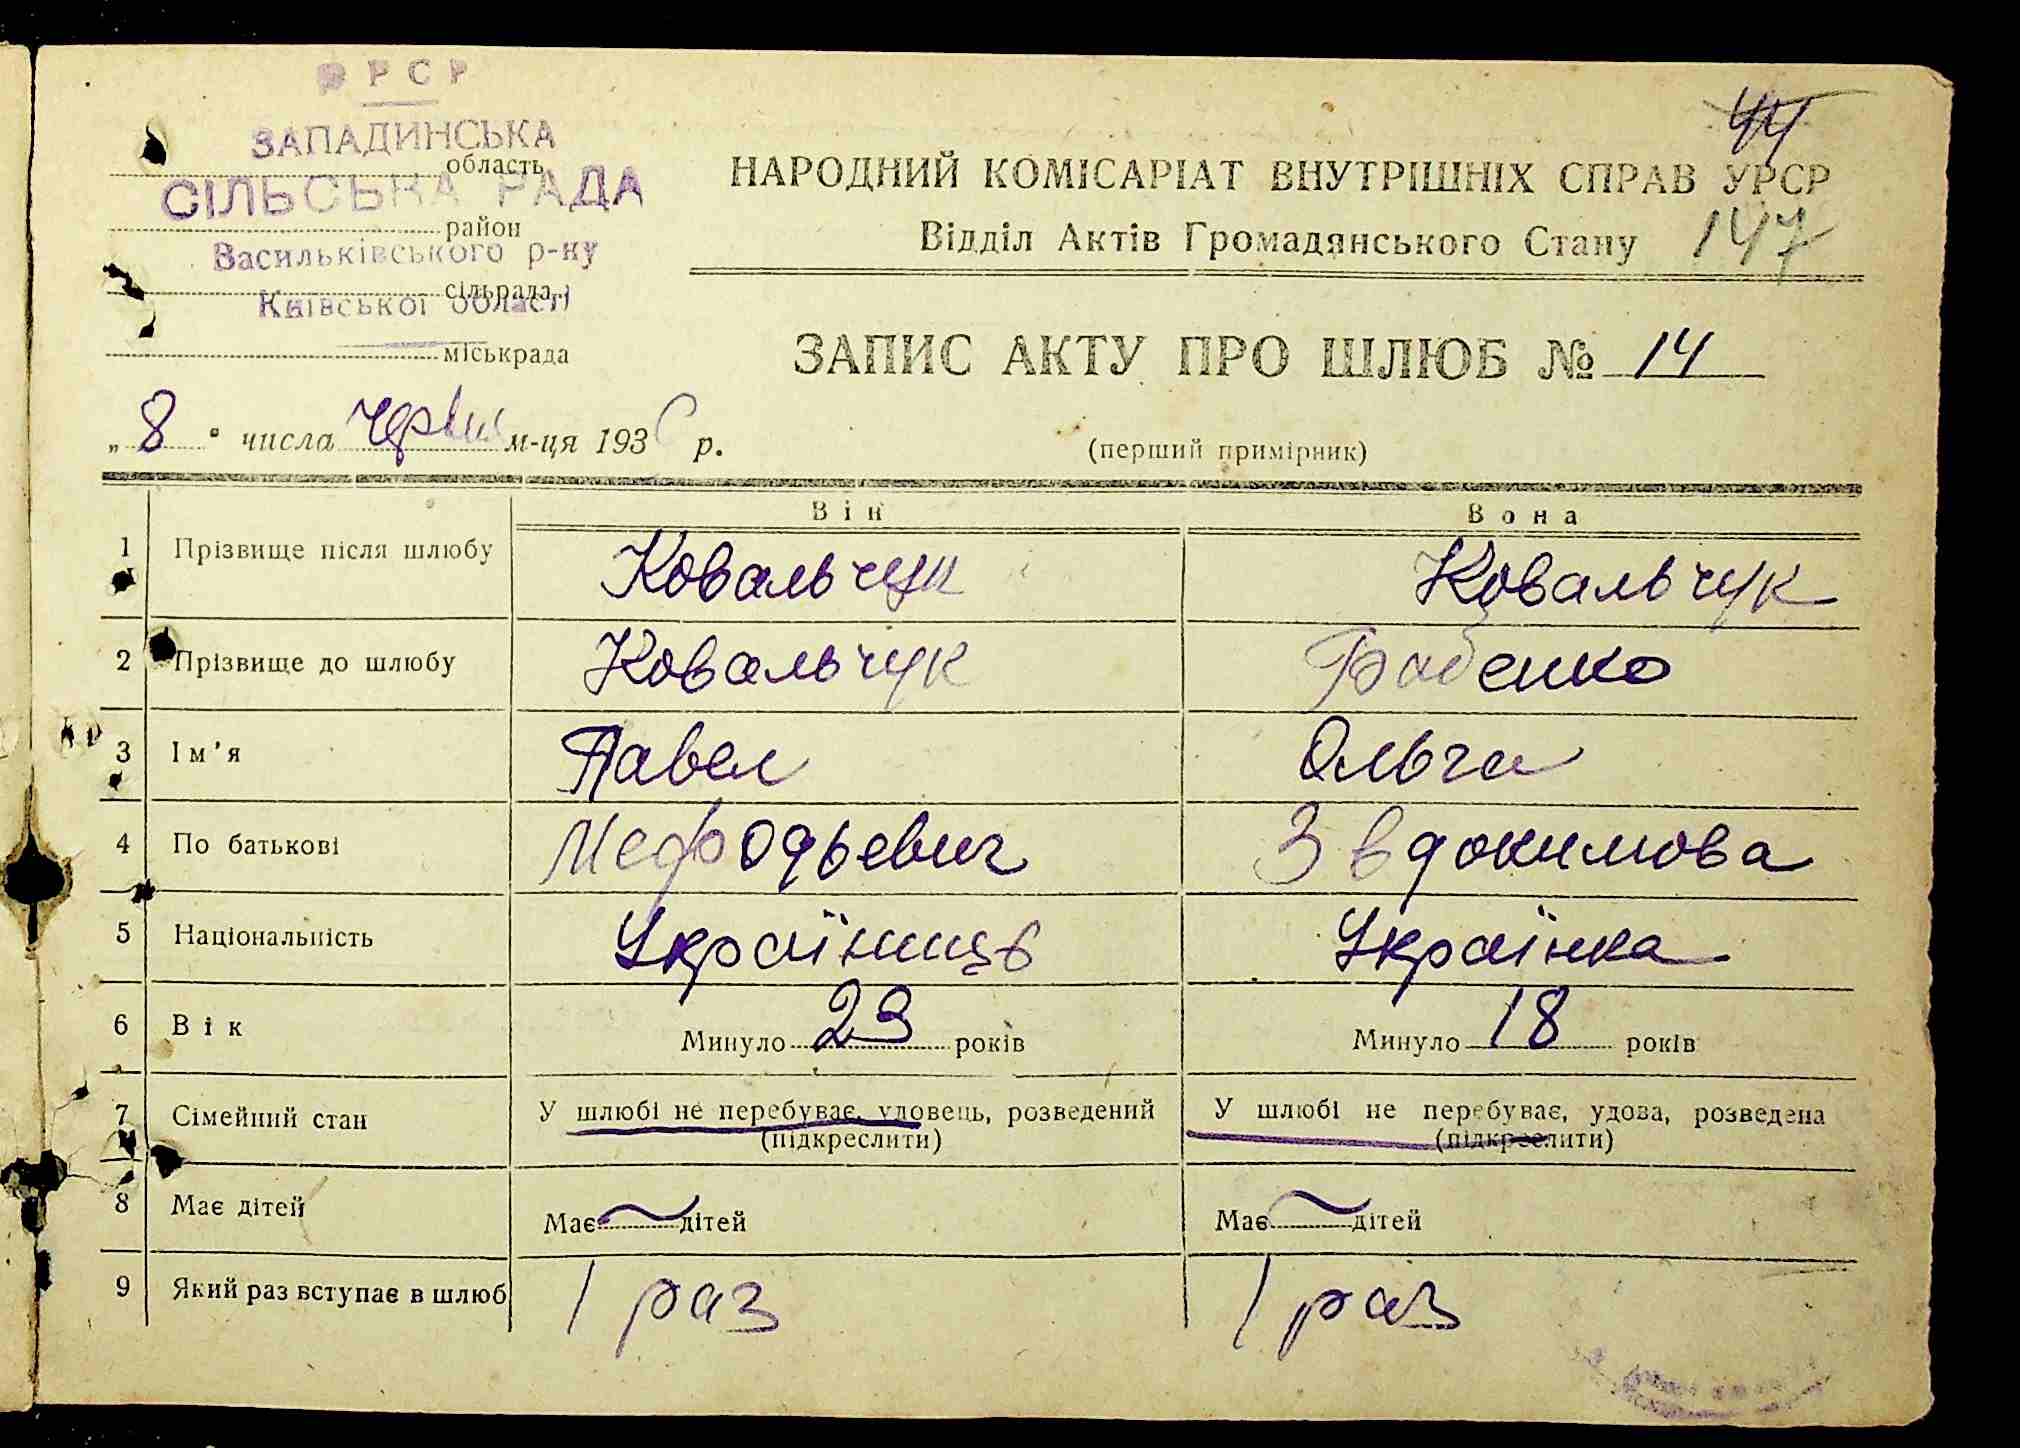 УРСР
44
ЗАПАДИНСЬКА
область
СІЛЬСЬКА РАДА
район
Васильківського р-ну
сільрада
Київської області
міськрада
НАРОДНИЙ КОМІСАРІАТ ВНУТРІШНІХ СПРАВ УРСР
Відділ Актів Громадянського Стану 147
ЗАПИС АКТУ ПРО ШЛЮБ № 14
„ 8 " числа червня м-ця 1936 р.
(перший примірник)
Він Вона
1 Прізвище після шлюбу Ковальчук Ковальчук
2 Прізвище до шлюбу Ковальчук Бабенко
3 Ім’я Павел Ольга
4 По батькові Мефодьевич Звдокимова
5 Національність Українець Українка
6 Вік Минуло 23 років Минуло 18 років
7 Сімейний стан У шлюбі не перебуває, удовець, розведений У шлюбі не перебуває, удова, розведена
(підкреслити) (підкреслити)
8 Має дітей Має ~ дітей Має ~ дітей
9 Який раз вступає в шлюб 1 раз 1 раз